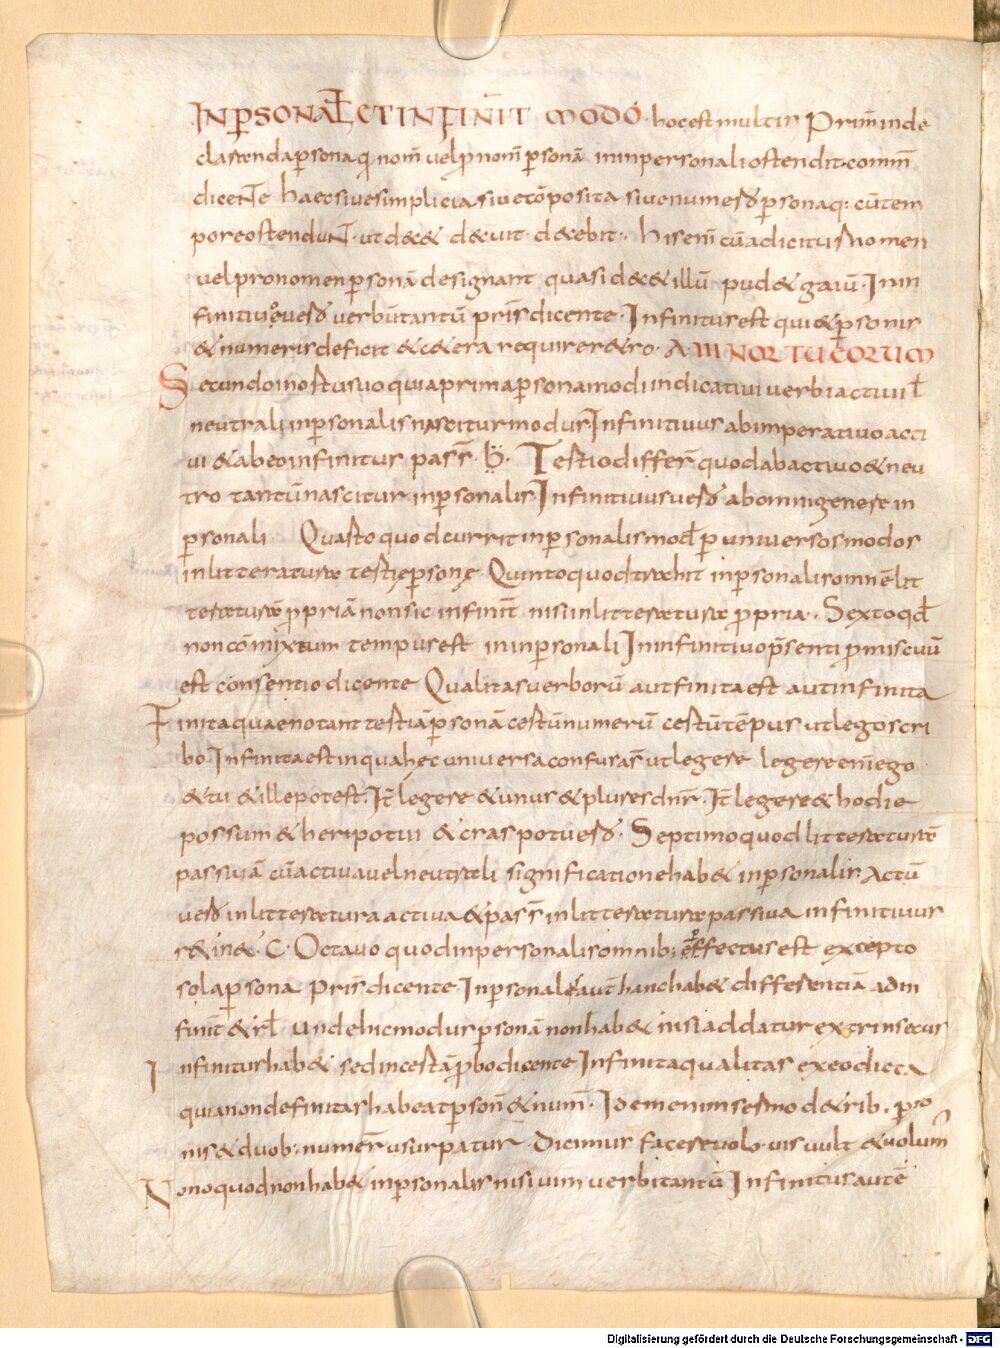 INP̄SONAŁ ET INFINIT̄ MODO · hoc est multis Prim̄ inde
clarenda p̄sona q̄ nom̄ vel p̄nom̄ p̄sonā in inpersonali ostendit · comm̄
dicente haec sive simplicia sive cōposita sive numeros p̄sonaq: cū tem
pore ostendunt · ut decet decuit decebit · his enī cū adicitur nomen
vel pronomen p̄sonā designant quasi decet illū pudet gaiū · In in
finitivo vero verbū tantū pris̄ dicente · Infinitus est qui et p̄sonis
et numeris deficit et cetera requirere ro · A MINORTUCORUM
Secundo modo suo quia prima p̄sona modi indicativi verbi activi ł
neutrali inp̄sonalis nascitur modus Infinitivus ab imperativo acti
vi et ab eo infinitus pass̄ · Tertio differ̄ quod ab activo et neu
tro tantū nascitur inp̄sonalis Infinitivus vero ab omni genere in
p̄sonali Quarto quod currit inp̄sonalis mod̄ p̄ universos modos
in litteratura tertie p̄sone Quinto quod trahit inp̄sonalis omnē lit
teraturā p̄priā non sic infinit̄ nisi in litteratura p̄pria · Sexto qd̄
non cōmixtum tempus est in inp̄sonali In infinitivo p̄senti p̄miscuū
est consentio dicente Qualitas verborū aut finita est aut infinita
Finita quae notant tertiā p̄sonā certū numerū certū tēpus ut lego scri
bo · Infinita est in qua hec universa confusa s̄ ut legere legere enī ego
et tu et ille potest · It̄ legere et unus et plures dnr̄ · It̄ legere et hodie
possum et heri potui et cras potuero · Septimo quod litteraturā
passivā cū activa vel neutrali significatione habet inp̄sonalis Actū
vero in litteratura activa et pass̄ in litteratura passiva infinitivus
retinet · C · Octavo quod inpersonalis omnib; effectus est excepto
sola p̄sona pris̄ dicente Inp̄sonale aut̄ hanc habet differentiā ad in
finit̄ et rł unde hic modus p̄sonā non habet nisi addatur extrinsecus
Infinitus habet sed incertā p̄bo dicente Infinita qualitas ex eo dicta
quia non definitas habeat p̄son̄ et num̄ · Idem enim sermo et trib. p̄so
nis et duob: numer̄ usurpatur · Dicimus facere volo vis vult et volum̄
Nono quod non habet inp̄sonalis nisi vim verbi tantū Infinitus autē